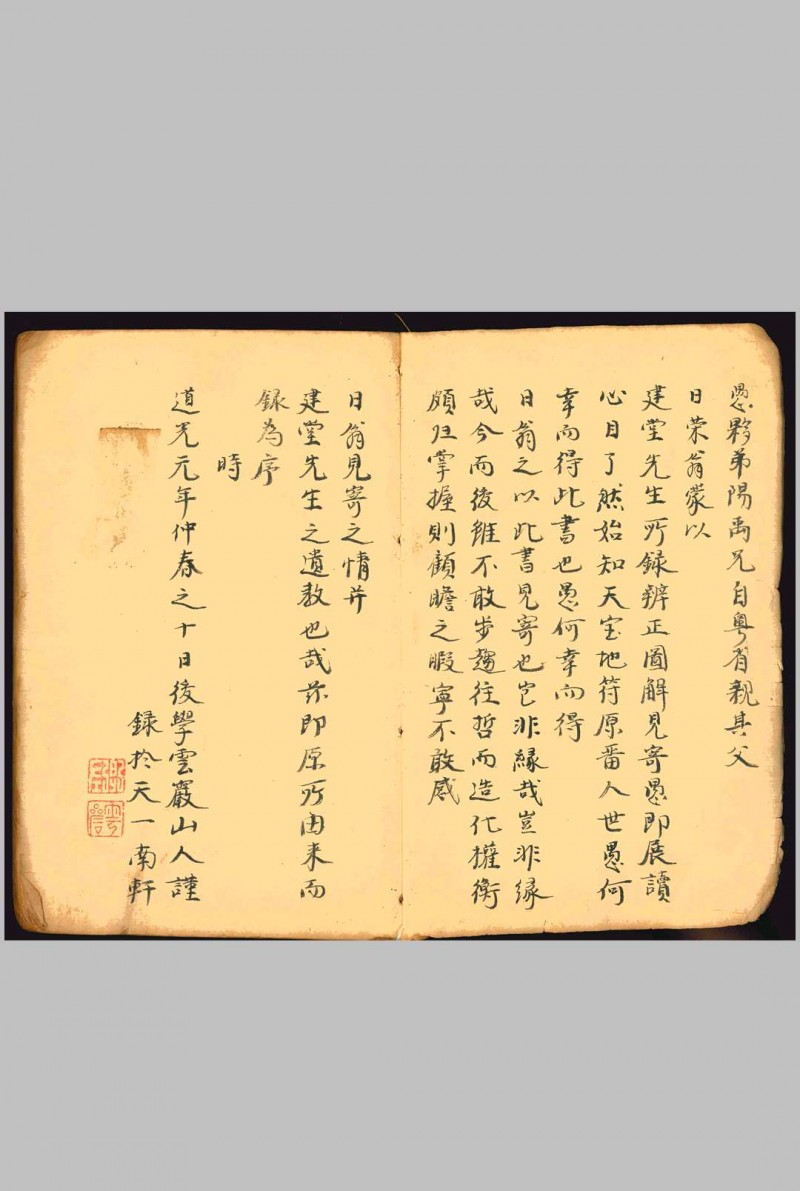 愚夥弟陽禹兄自粵省親其父
日荣翁蒙以
建堂先生所録辨正圖解見寄愚即展讀
心目了然始知天宝地符原畨人世愚何
幸而得此書也愚何幸而得
日翁之以此書見寄也岂非緣哉豈非缘
哉今而後雖不敢步趨往哲而造化權衡
頗归掌握則顧瞻之暇寧不敢感
日翁見寄之情并
建堂先生之遺教也哉茲即原所由来而
録為序
時
道光元年仲春之十日後學雲巖山人謹
録於天一南軒